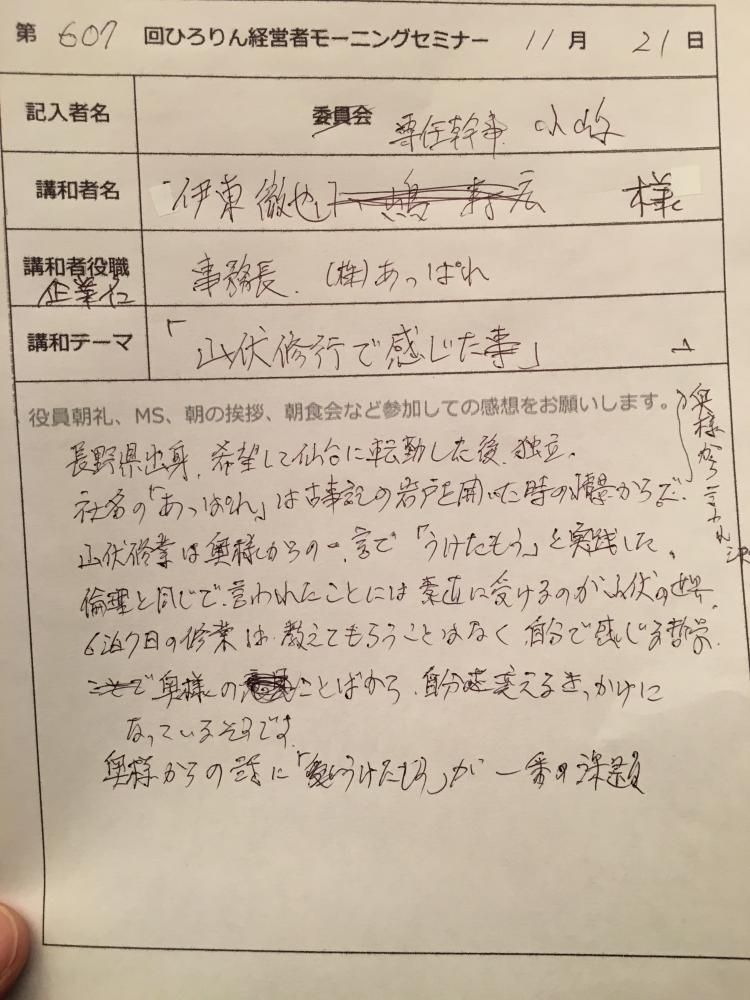 第 607 回ひろりん経営者モーニングセミナー 11月 21日
記入者名 委員会 専任幹事 小峰
講和者名 伊東徹也 様
講和者役職 事務長 (株)あっぱれ
企業名
講和テーマ 「山伏修行で感じた事」
役員朝礼、MS、朝の挨拶、朝食会など参加しての感想をお願いします。
奥様から言われ
長野県出身、希望して仙台に転勤した後、独立。
社名の「あっぱれ」は古事記の岩戸を開いた時の情景からだ。
山伏修業は奥様からの一言で「うけたもう」を実践した。
倫理と同じで言われたことには素直に受けるのが山伏の世界。
6泊7日の修業は、教えてもらうことはなく、自分で感じる哲学。
奥様のことばから、自分を変えるきっかけに
なっているそうです。
奥様からの話に「うけたもう」が一番の課題